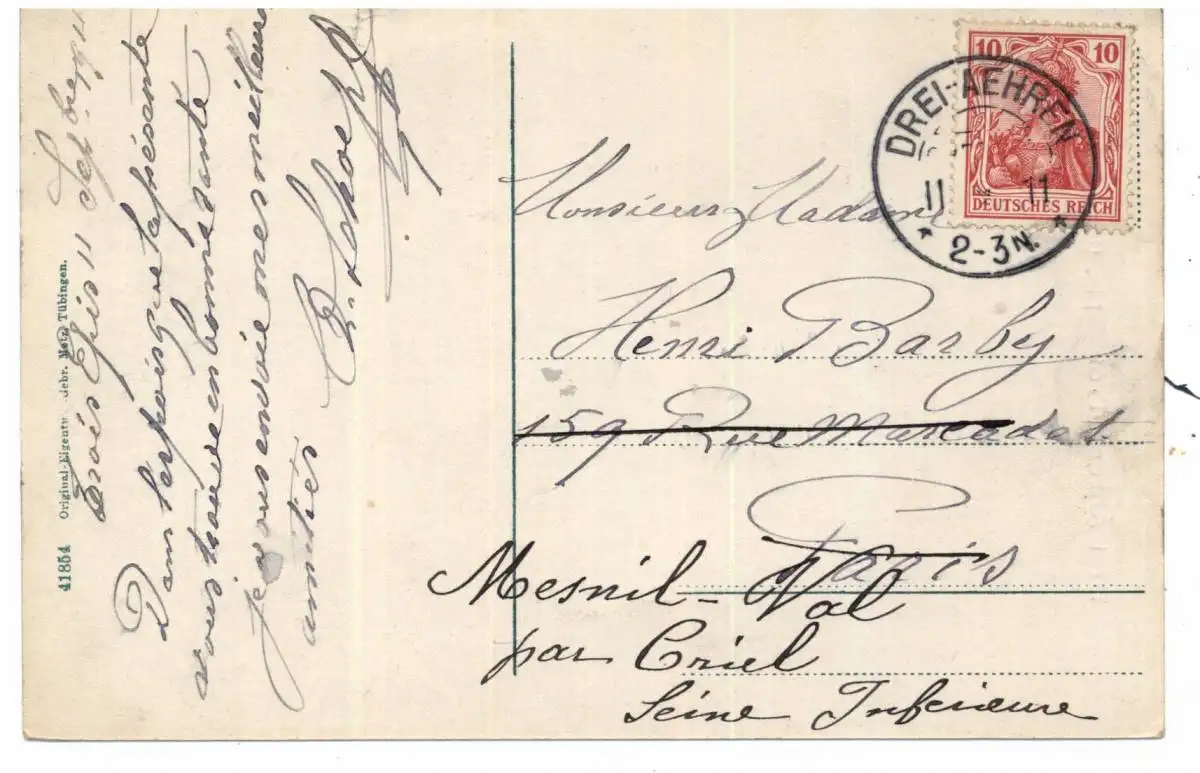 Trois Epis 11 Septbre 1911
Dans l'espoir que la présente
vous trouve en bonne santé
je vous envoie mes meilleures
amitiés
41854 Original-Eigentum Gebr. Metz, Tübingen.
10 10
DEUTSCHES REICH
DREI-AEHREN
11 11
* 2-3 N. *
Monsieur, Madame
Henri Barby
159 Rue Marcadet
Paris
Mesnil-Val
par Criel
Seine Inférieure